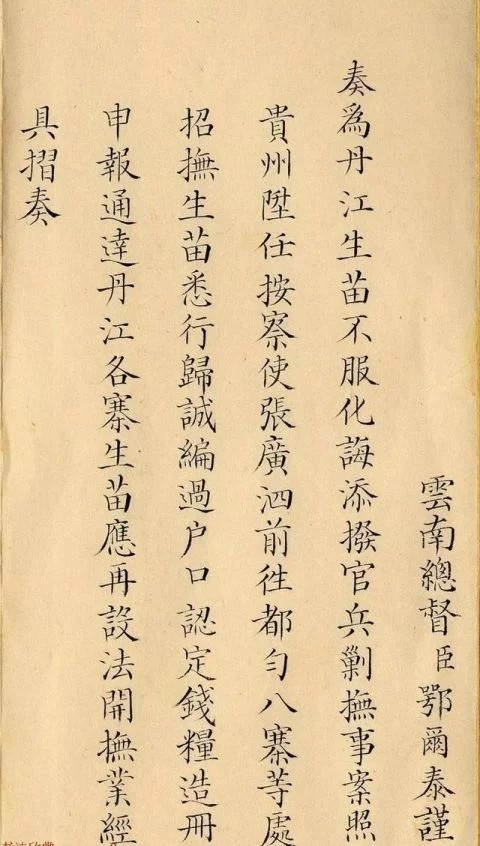 雲南總督臣鄂爾泰謹
奏為丹江生苗不服化誨添撥官兵剿撫事案照
貴州陞任按察使張廣泗前徃都勻八寨等處
招撫生苗悉行歸誠編過户口認定錢糧造冊
申報通達丹江各寨生苗應再設法開撫業經
具摺奏